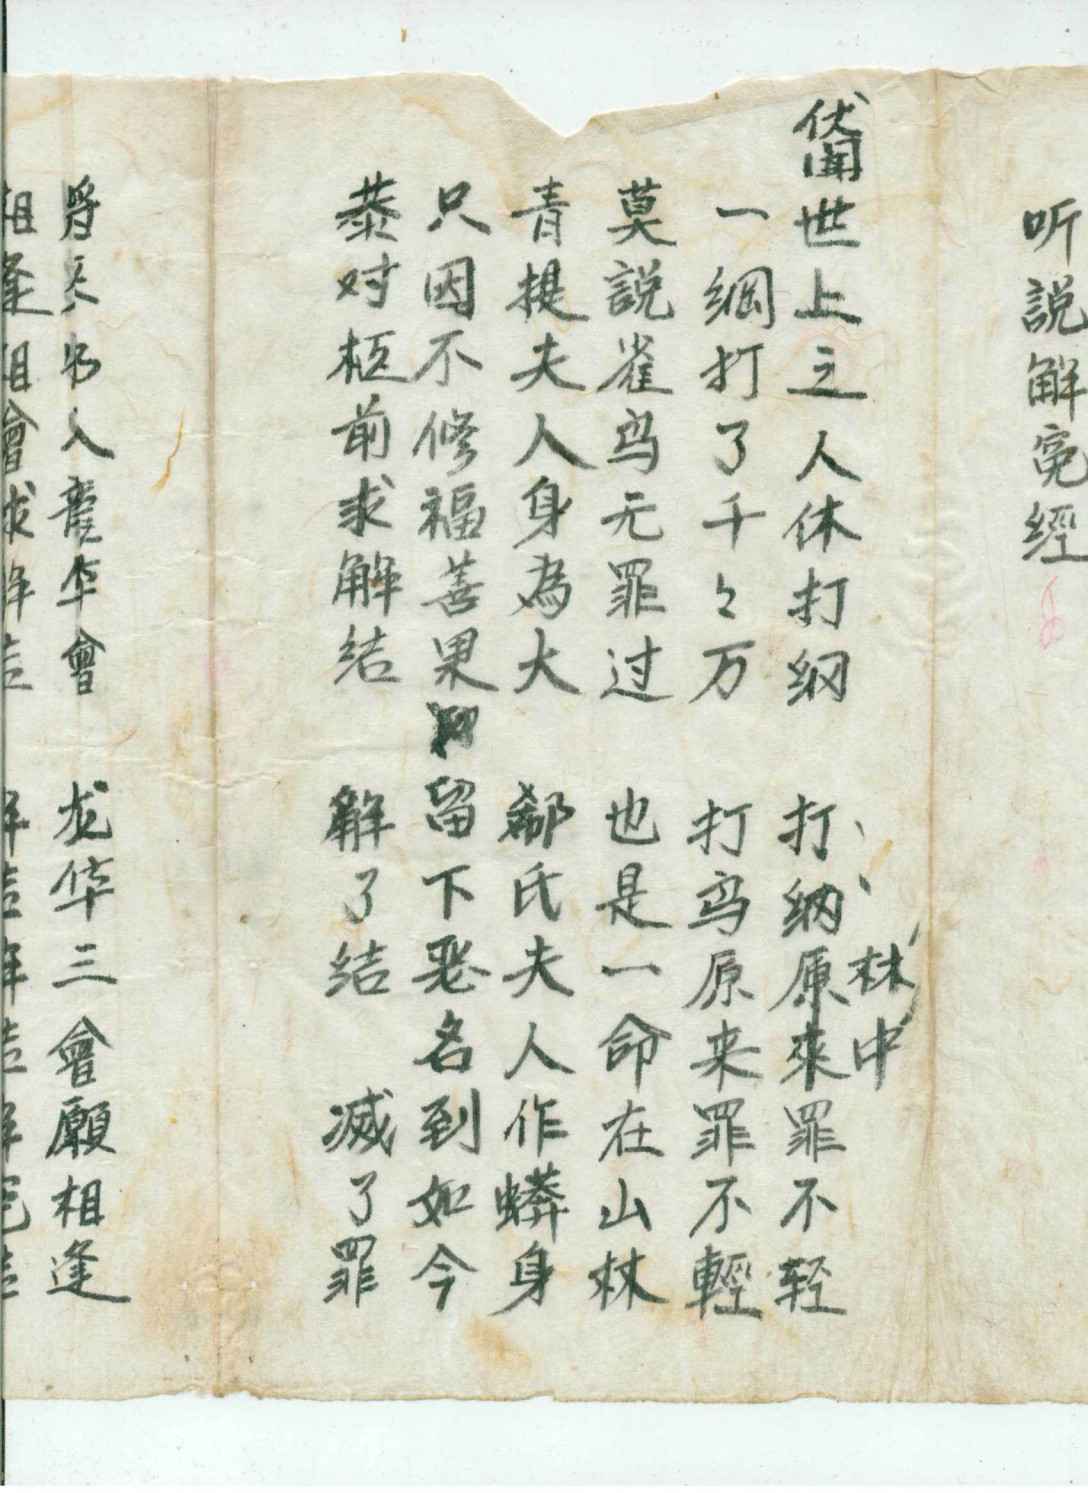 听説解寃經
伏闻世上之人休打纲 打纲原來罪不轻
林中
一綱打了千々万 打鸟原来罪不輕
莫説雀鸟无罪过 也是一命在山林
青提夫人身為大 郗氏夫人作蟒身
只因不修福善果 留下恶名到如今
恭对柩前求解结 解了结 滅了罪
龍華會 龙华三會願相逢
相逢相會求解